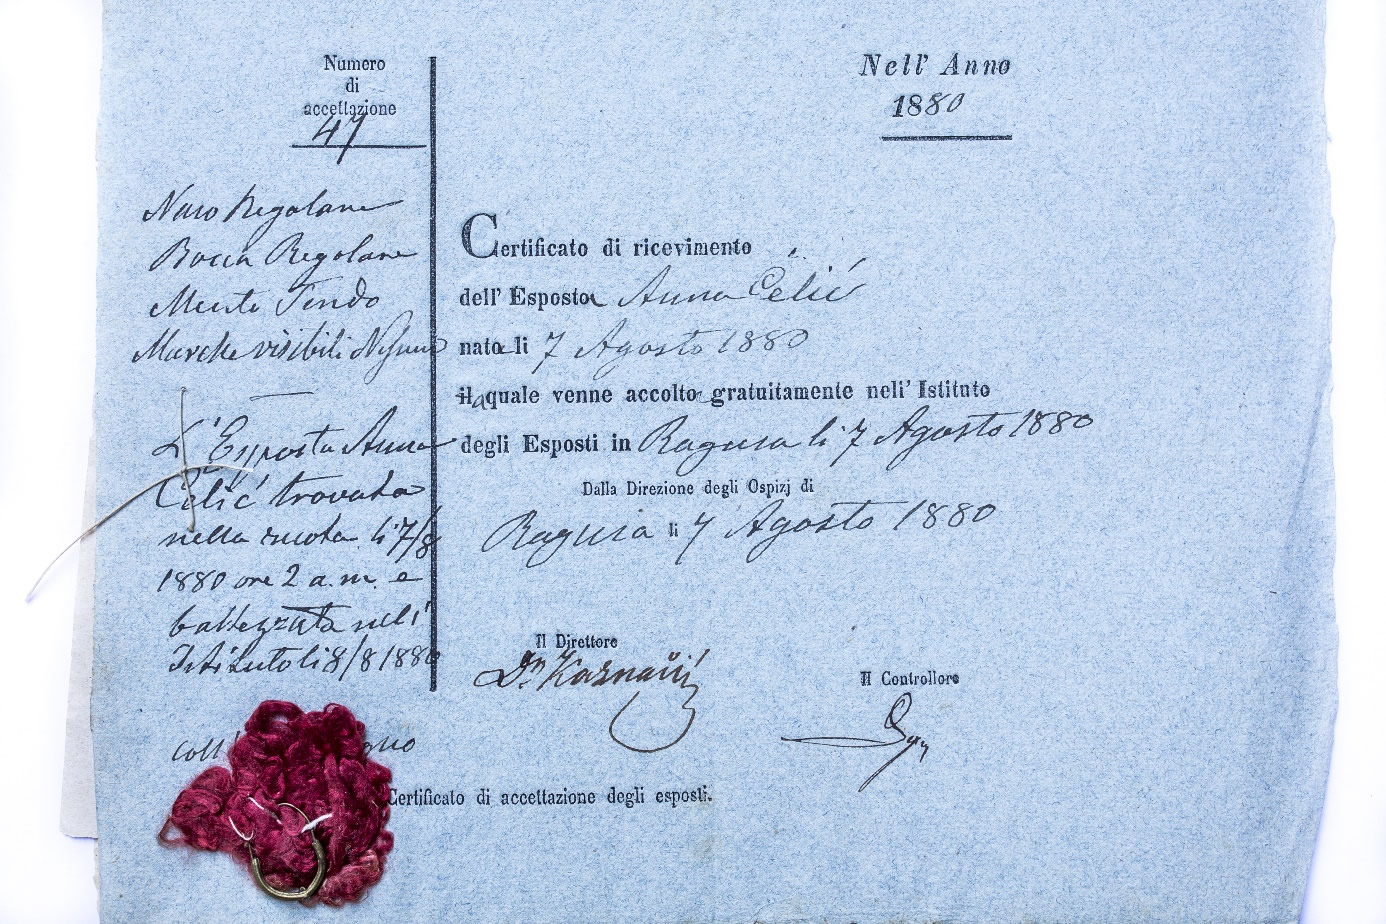 Numero
di
accettazione
47
Nell' Anno
1880
Naso Regolare
Bocca Regolare
Mento Tondo
Marche visibili Nessuna
L'Esposta Anna
Celić trovata
nella ruota li 7/8
1880 ore 2 a.m. e
battezzata nell'
Istituto li 8/8 1880
coll'
Certificato di ricevimento
dell' Esposta Anna Celić
nata li 7 Agosto 1880
la quale venne accolta gratuitamente nell' Istituto
degli Esposti in Ragusa li 7 Agosto 1880
Dalla Direzione degli Ospizj di
Ragusa li 7 Agosto 1880
Il Direttore
Dr. Kaznačić
Il Controllore
Certificato di accettazione degli esposti.